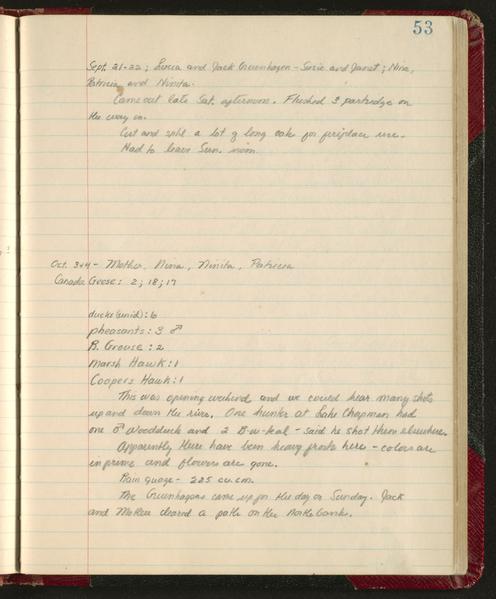 53
Sept. 21-22; Lucca and Jack Greenhagen - Susie and Janet; Nina,
Patricia and Ninita.
Came out late Sat. afternoon. Flushed 3 partridge on
the way in.
Cut and split a lot of long oak for fireplace use.
Had to leave Sun. noon.
Oct. 3+4 - Mother, Nina, Ninita, Patricia
Canada Geese: 2; 18; 17
ducks (unid): 6
pheasants: 3 ♂
R. Grouse: 2
Marsh Hawk: 1
Coopers Hawk: 1
This was opening weekend and we could hear many shots
up and down the river. One hunter at Lake Chapman had
one ♂ woodduck and 2 B-w-teal - said he shot them elsewhere.
Apparently there have been heavy frosts here - colors are
in prime and flowers are gone.
Rain guage - 225 cu. cm.
The Greenhagens came up for the day on Sunday. Jack
and cleared a path on the north bank.